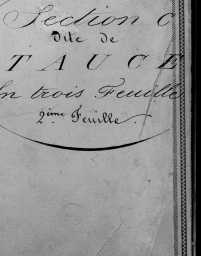 Section C
dite de
TAUCE
En trois Feuille
2ème Feuille.